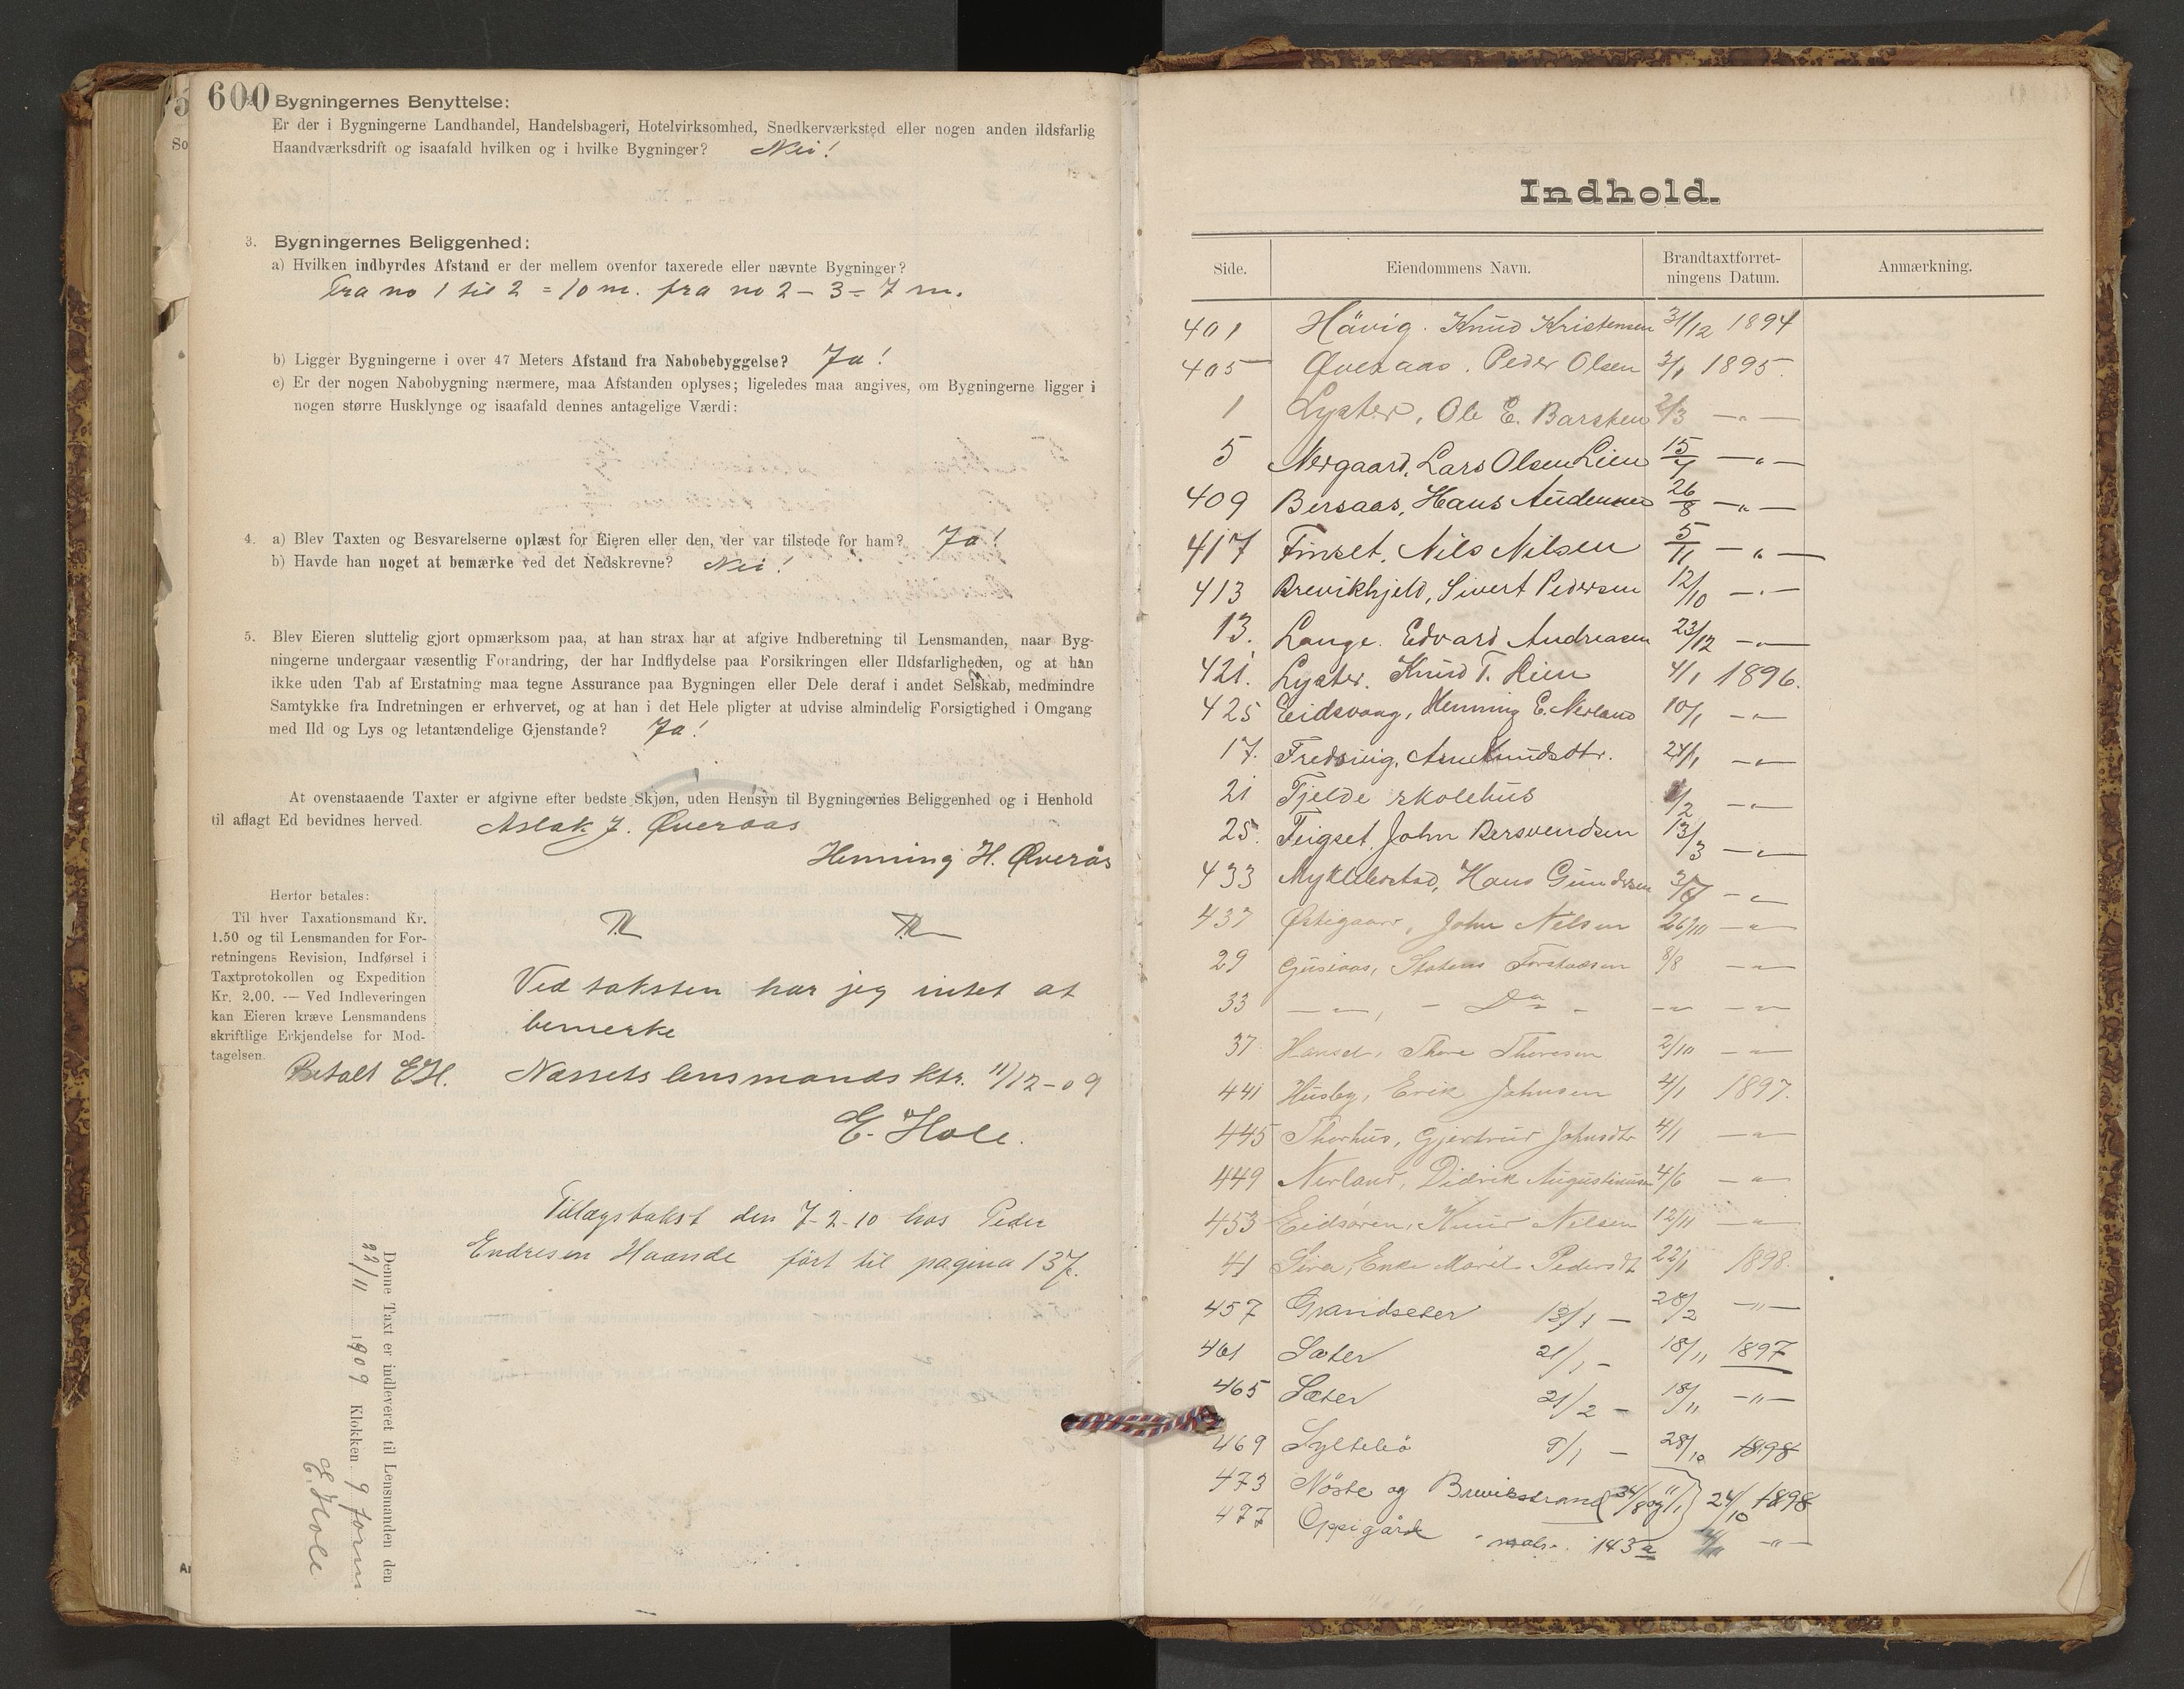 600
Bygningernes Benyttelse:
Er der i Bygningerne Landhandel, Handelsbageri, Hotelvirksomhed, Snedkerværksted eller nogen anden ildsfarlig
Haandværksdrift og isaafald hvilken og i hvilke Bygninger? Nei!
3. Bygningernes Beliggenhed:
a) Hvilken indbyrdes Afstand er der mellem ovenfor taxerede eller nævnte Bygninger?
Fra no 1 til 2 = 10 m. fra no 2 – 3 = 7 m.
b) Ligger Bygningerne i over 47 Meters Afstand fra Nabobebyggelse? Ja!
c) Er der nogen Nabobygning nærmere, maa Afstanden oplyses; ligeledes maa angives, om Bygningerne ligger i
nogen større Husklynge og isaafald dennes antagelige Værdi:
4. a) Blev Taxten og Besvarelserne oplæst for Eieren eller den, der var tilstede for ham? Ja!
b) Havde han noget at bemærke ved det Nedskrevne? Nei!
5. Blev Eieren sluttelig gjort opmærksom paa, at han strax har at afgive Indberetning til Lensmanden, naar Byg-
ningerne undergaar væsentlig Forandring, der har Indflydelse paa Forsikringen eller Ildsfarligheden, og at han
ikke uden Tab af Erstatning maa tegne Assurance paa Bygningen eller Dele deraf i andet Selskab, medmindre
Samtykke fra Indretningen er erhvervet, og at han i det Hele pligter at udvise almindelig Forsigtighed i Omgang
med Ild og Lys og letantændelige Gjenstande? Ja!
At ovenstaaende Taxter er afgivne efter bedste Skjøn, uden Hensyn til Bygningernes Beliggenhed og i Henhold
til aflagt Ed bevidnes herved. Aslak J. Øveraas
Henning H. Øverås
Herfor betales:
Til hver Taxationsmand Kr.
1.50 og til Lensmanden for For-
retningens Revision, Indførsel i
Taxtprotokollen og Expedition
Kr. 2.00. — Ved Indleveringen
kan Eieren kræve Lensmandens
skriftlige Erkjendelse for Mod-
tagelsen.
Betalt EH.
Ved taksten har jeg intet at
bemerke
Nessets lensmandsktr. 11/12 – 09
E. Hole.
Tillægstakst den 7-2-10 hos Peder
Endresen Haande ført til pagina 137.
Denne Taxt er indleveret til Lensmanden den
22/11 1909 Klokken 9 form
E. Hole
Indhold.
Side. Eiendommens Navn. Brandtaxtforret-
ningens Datum. Anmærkning.
401 Hävig. Knud Kristensen 31/12 1894
405 Øveraas. Peder Olsen 3/1 1895.
1 Lyster, Ole E. Barsten 2/3 — " —
5 Nergaard, Lars Olsen Lien 15/7 — " —
409 Bersaas, Hans Andersen 26/8 — " —
417 Finset, Nils Nilsen 5/11 — " —
413 Brevikhjeld, Sivert Pedersen 12/10 — " —
13. Lange. Edvard Andreasen 23/12 — " —
421. Lyster. Knud T. Lien 4/1 1896.
425 Eidsvaag, Henning E. Nerland 10/1 — " —
17. Fredsvig, Arne Knudsdtr. 24/1 — " —
21 Tjelde skolehus 1/2 — " —
25. Feigset, John Bersvendsen 13/3 — " —
433 Myklebostad, Hans Gundersen — " —
437 Østigaard, John Nilsen 26/10 — " —
29 Gusiaas, 8/8 — " —
33 — " —, – Do – — " — — " —
37 Hansel, Thore Thoresen 2/10 — " —
441 Husby, Erik Johnsen 4/1 1897.
445 Thorhus, Gjertrud Johnsdtr 4/1 — " —
449 Nerland, Didrik Augustinusen 4/6 — " —
453 Eidsøren, Knud Nilsen 12/11 — " —
41 Sira, Enke Marit Pedersdt 22/1 1898.
457 Grandseter 13/1 — 28/2 — " —
461 Sæter 21/1 – 18/11 1897
465 Sæter 21/2 – 18/11 — " —
469 Syltebø 9/1 — 28/10 1898
473 Nöste og Brevikstrand 24/10 1898
477 Oppigård 143 a — " —